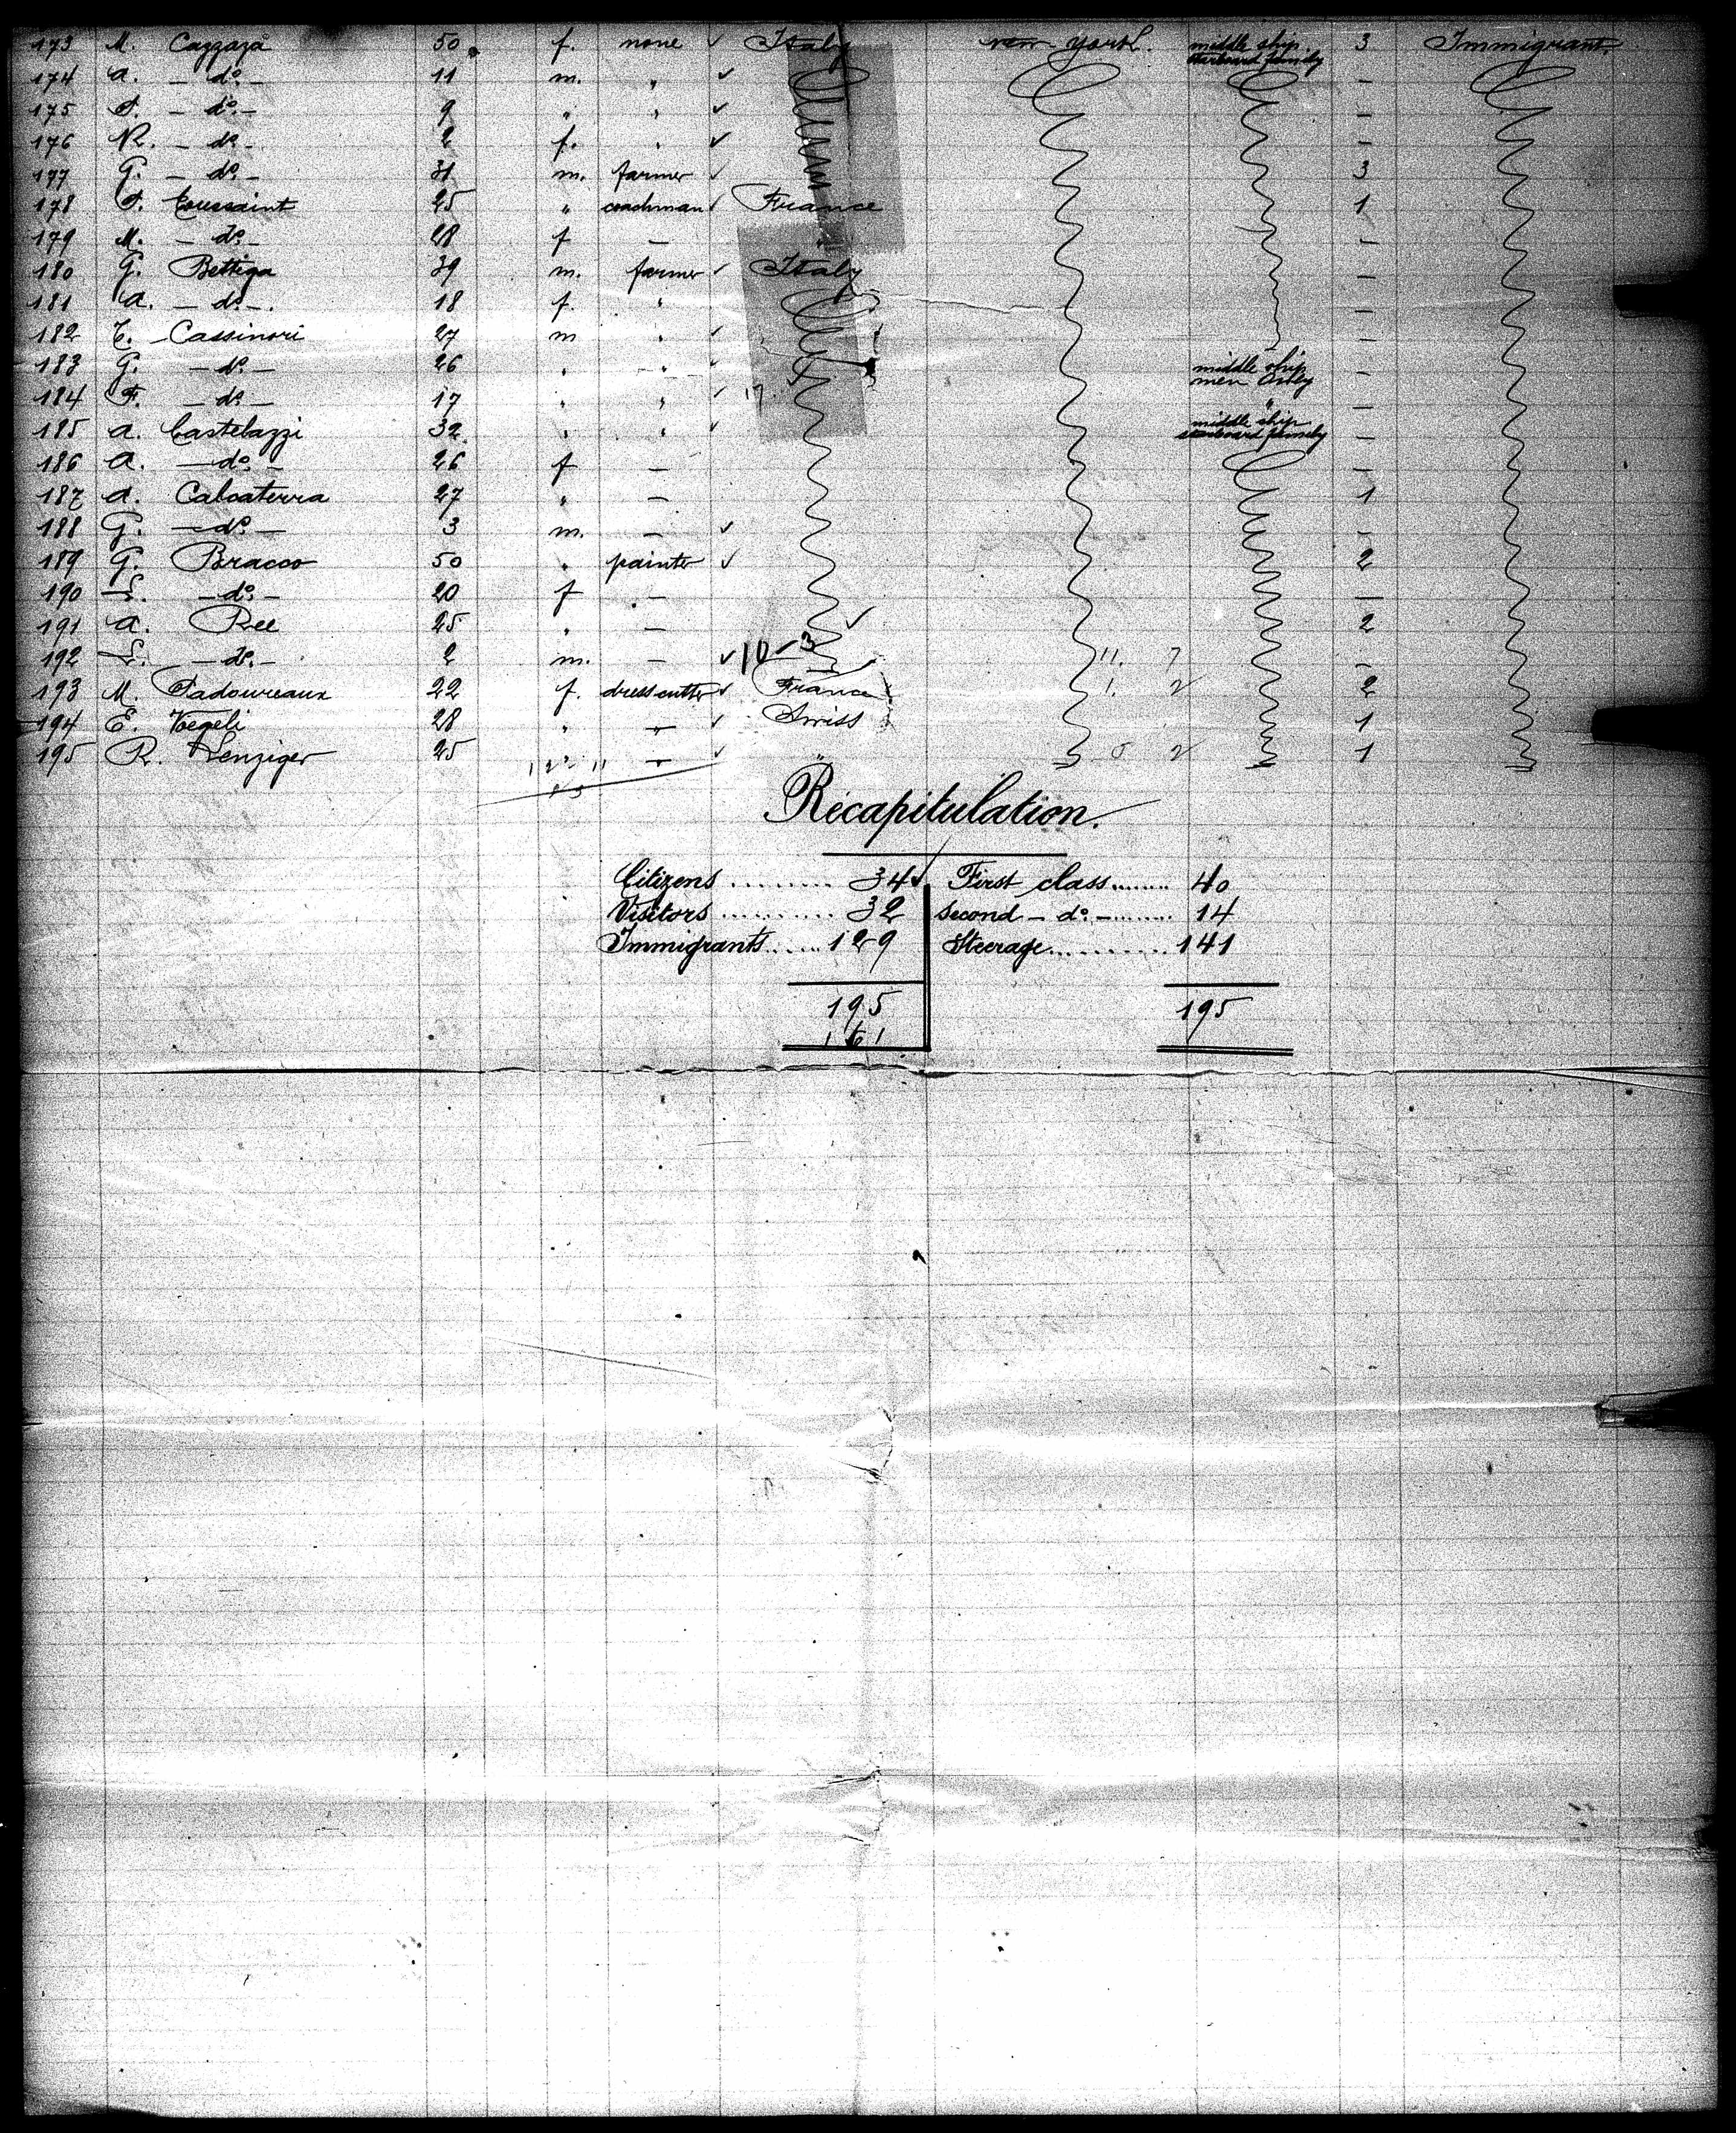 173 M. Cazzaza 50 f. none ✓ Italy New York. middle ship. starboard family 3 Immigrant
174 A. - do - 11 m. " ✓ -
175 F. - do - 9 " " ✓ -
176 R. - do - 2 f. " ✓ -
177 G. - do - 31 m. farmer ✓ 3
178 F. Toussaint 25 " coachman ✓ France 1
179 M. - do - 28 f - " -
180 G. Bettiga 39 m. farmer ✓ Italy -
181 A. - do - 18 f. " -
182 E. Cassinori 27 m " ✓ -
183 G. - do - 26 " " ✓ middle ship men only -
184 F. - do - 17 " " ✓ 17 " -
185 A. Castelazzi 32 " " ✓ middle ship starboard family -
186 A. - do - 26 f - -
187 A. Calcaterra 27 " - 1
188 G. - do - 3 m. - ✓ -
189 G. Bracco 50 " painter ✓ 2
190 L. - do - 20 f - -
191 A. Ree 25 " - ✓ 2
192 L. - do - 2 m. - ✓ 10-3 11. 7 -
193 M. Padoureaux 22 f. dress cutter ✓ France 1. 2 2
194 E. Voegeli 28 " " ✓ Swiss 1
195 R. Lenziger 25 " ✓ " 5 2 1
Récapitulation.
Citizens ........ 34 ✓ First class ....... 40
Visitors .......... 32 Second - do - ....... 14
Immigrants ..... 129 Steerage .......... 141
195 195
161